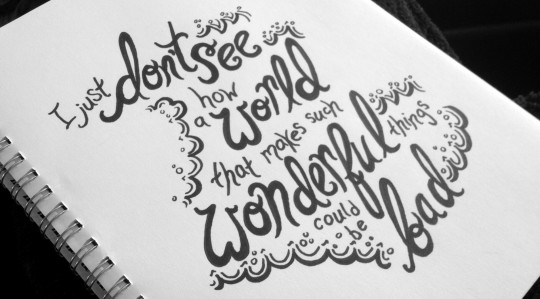 I just don't see
how
a world
that makes such
wonderful things
could
be bad